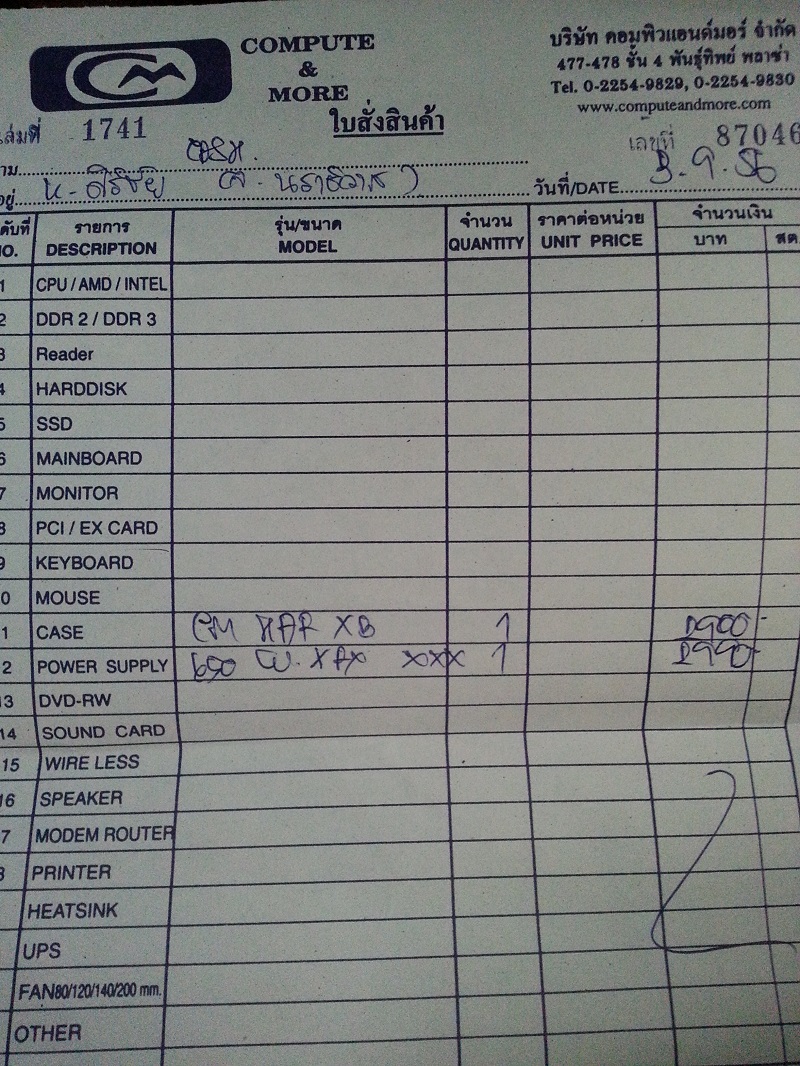 COMPUTE
&
MORE
บริษัท คอมพิวแอนด์มอร์ จำกัด
477-478 ชั้น 4 พันธุ์ทิพย์ พลาซ่า
Tel. 0-2254-9829, 0-2254-9830
www.computeandmore.com
เล่มที่ 1741
ใบสั่งสินค้า
เลขที่ 87046
วันที่/DATE 3.9.56
รายการ รุ่น/ขนาด จำนวน ราคาต่อหน่วย จำนวนเงิน
NO. DESCRIPTION MODEL QUANTITY UNIT PRICE บาท สต.
1 CPU / AMD / INTEL
2 DDR 2 / DDR 3
3 Reader
4 HARDDISK
5 SSD
6 MAINBOARD
7 MONITOR
8 PCI / EX CARD
9 KEYBOARD
0 MOUSE
1 CASE CM HAF XB 1
2 POWER SUPPLY 650 W. 1 2990-
13 DVD-RW
14 SOUND CARD
15 WIRE LESS
16 SPEAKER
7 MODEM ROUTER
8 PRINTER
HEATSINK
UPS
FAN80/120/140/200 mm.
OTHER